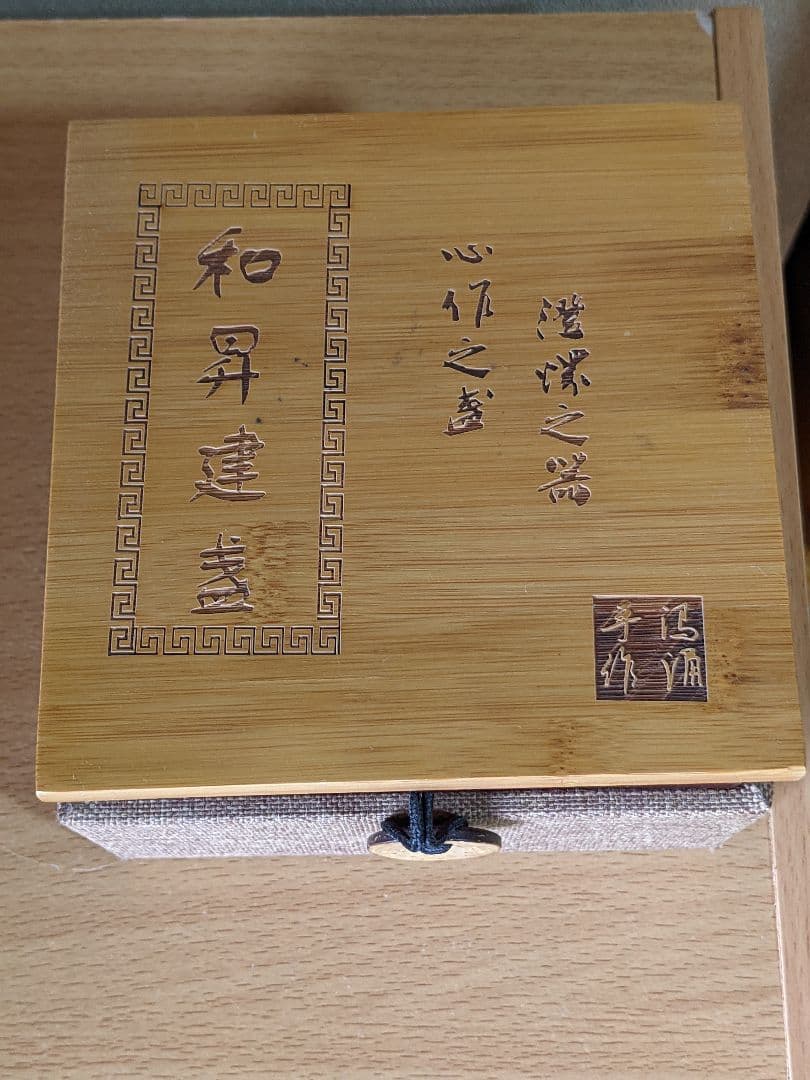 澄之器
心作之盞
和昇建盏
冯涌
手作